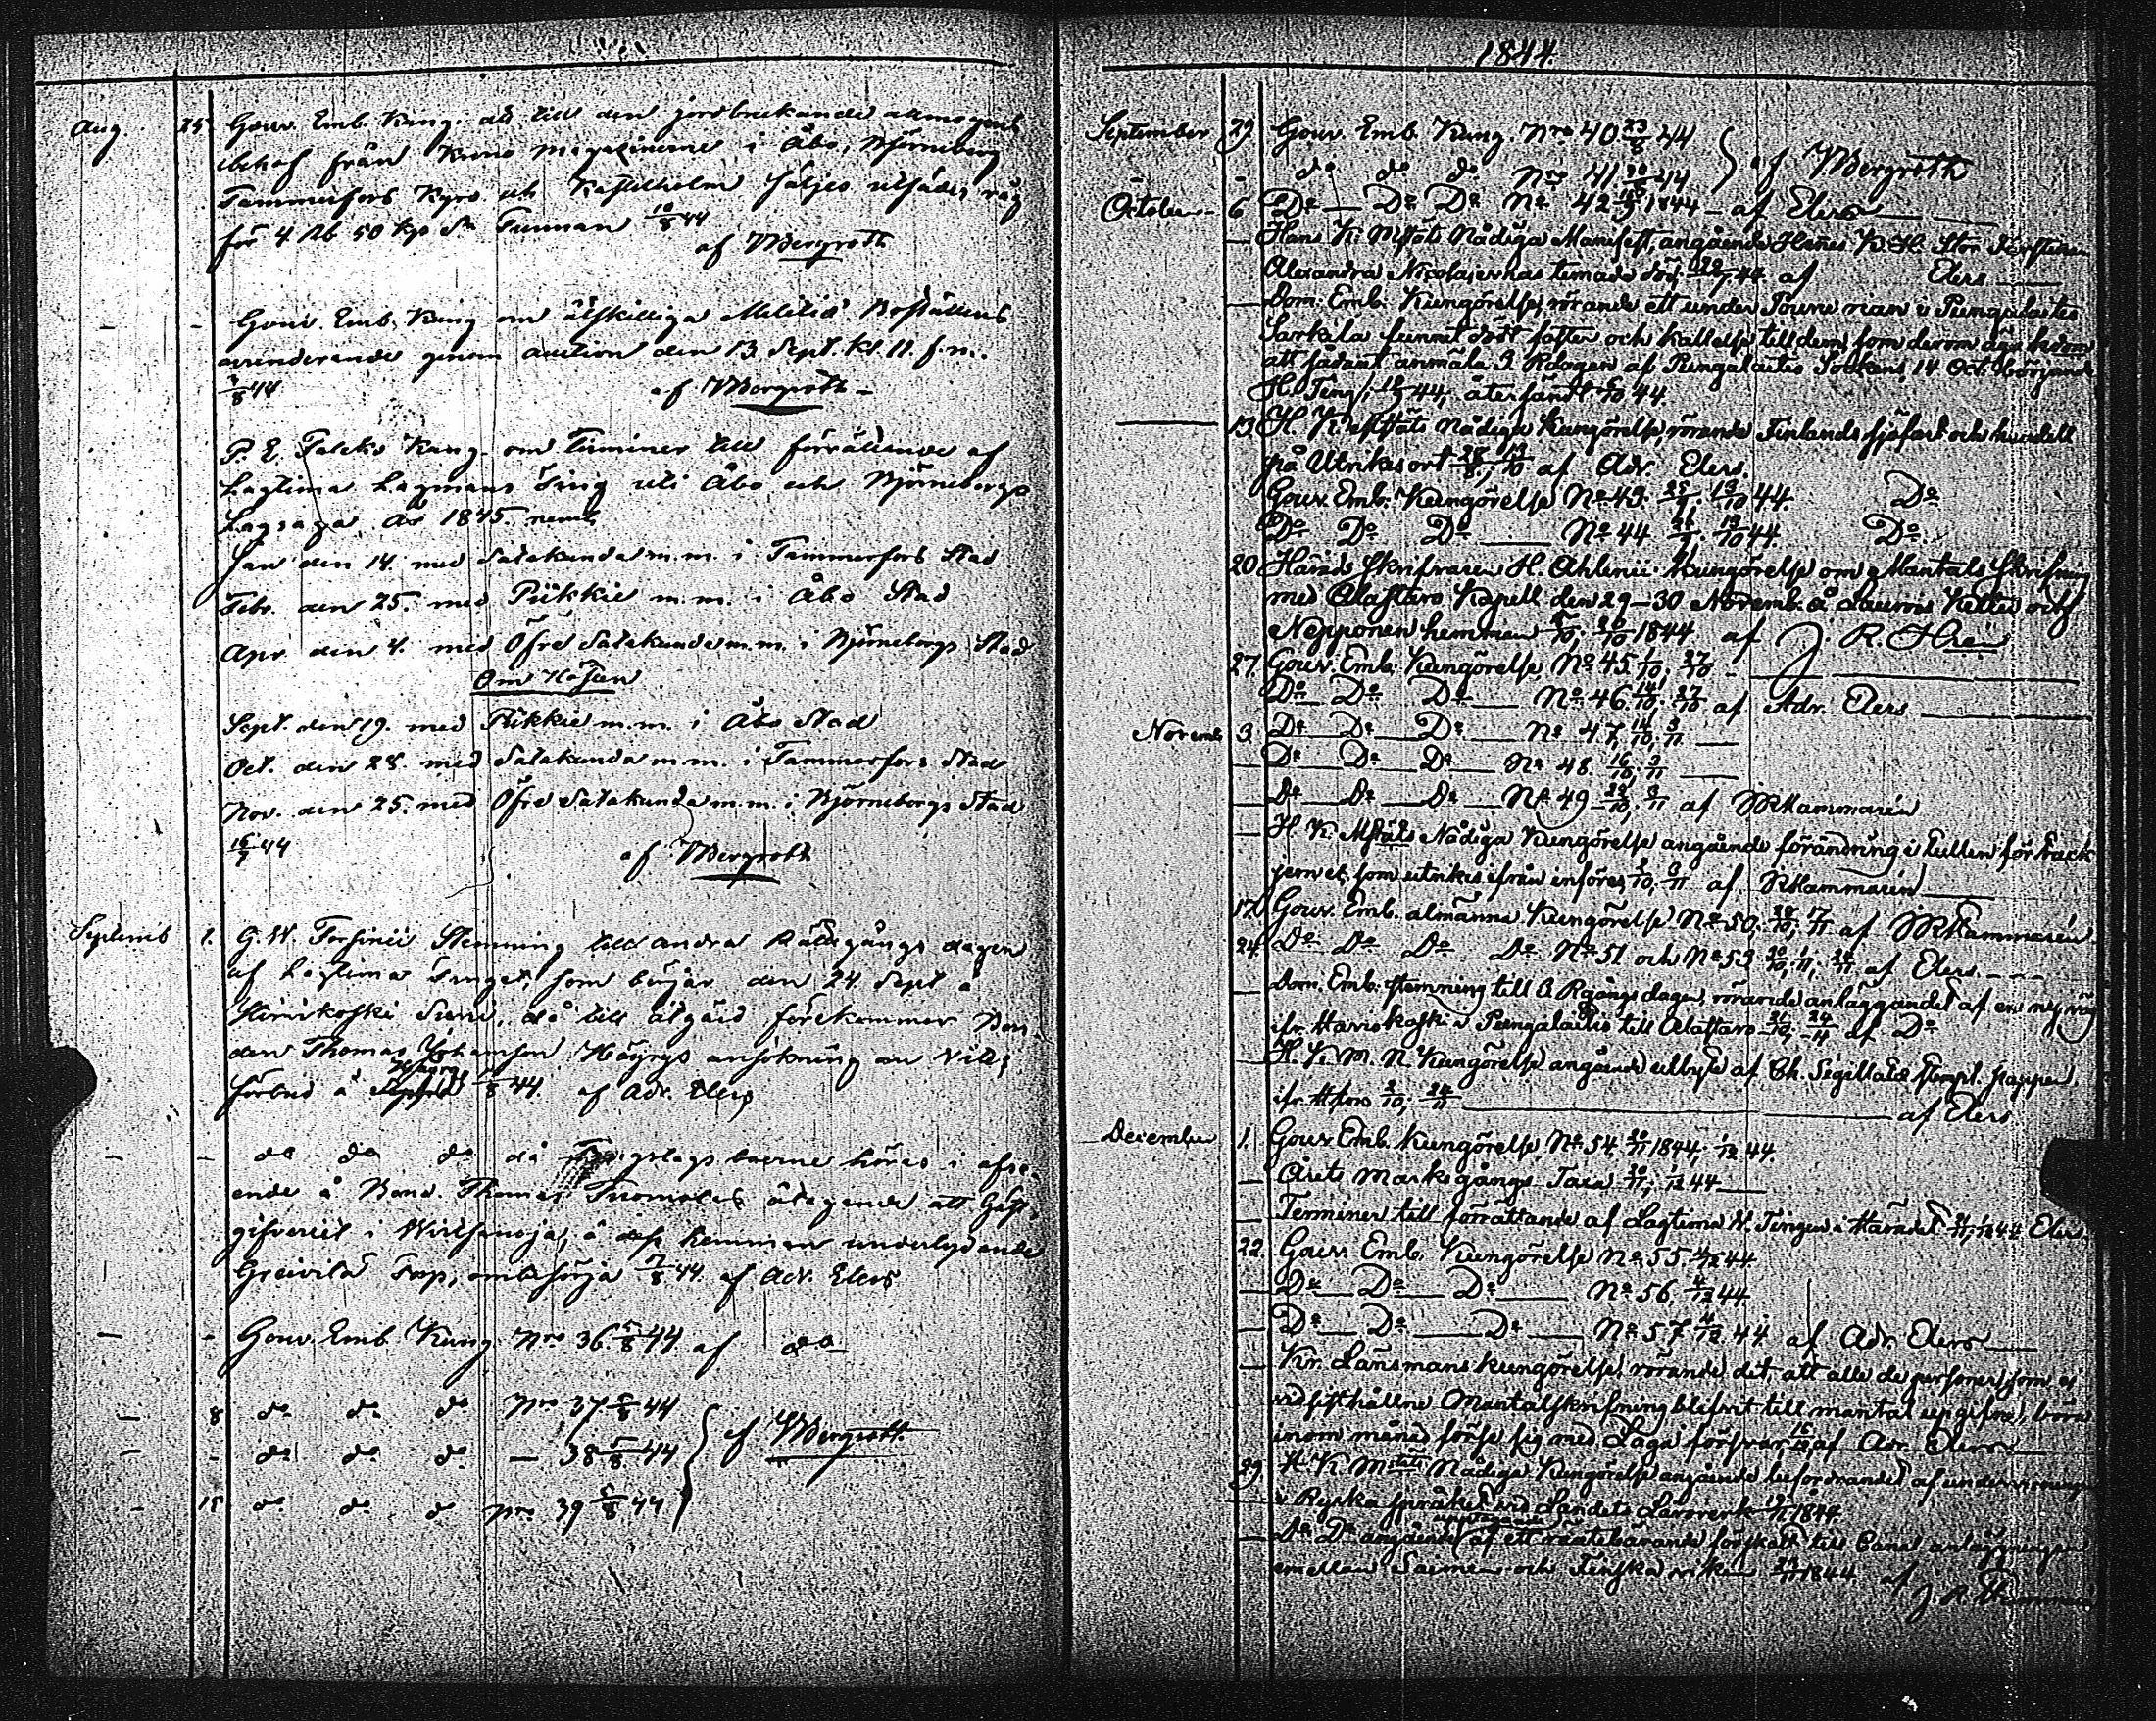 Aug. 25 Gouv. Emb. Kung: att till den jordbrukande allmogens
behof från Krono Magazinerne i Åbo, Björneborg
Tammerfors Kyro och Kastelholm säljes utsädes råg
för 4 Rb 50 kop Sr Tunnan 10/8 44
af Bergroth
- - Gouv. Emb. Kung om åtskilliga Militiæ Boställens
arrenderande genom auction den 13. Sept. kl. 11. f.m.
3/8 44 af Bergroth -
P. E. Falcks Kung. om Terminer till förrättande af
Lagtima Lagmans Ting uti Åbo och Björneborgs
Lagsaga År 1845. neml.
Jan den 14. med Satakunda m.m. i Tammerfors Stad
Febr. den 25. med Pikkie m.m. i Åbo Stad
Apr. den 4. med Öfre Satakunda m.m. i Björneborgs Stad
Om Hösten
Sept. den 19. med Pikkie m.m. i Åbo Stad
Oct. den 28. med Satakunda m.m. i Tammerfors Stad
Nov. den 25. med Öfre Satakunda m.m. i Björneborgs Stad
16/7 44 af Bergroth
Septemb 1. G. W. Forsinii Stemning till andra Rättegångs dagen
af Lagtima Tinget, som börjar den 24. Sept å
då till åtgärd förekommer Bon
den Thomas Johansson Högrgs ansökning om Vites
förbud å 44. af Adv. Elers
- - do do do då baerne höras i afse
ende å Bond. Thomas Tuomolas åtagende att Gäst
gifveriet i Wirtsanoja, å dess hemman underlydande
Greivilä Torp, ombesörja 7/8 44. af Adv. Elers
- - Gouv. Emb. Kung. Nro 36. 5/8 44. af do
- 8 do do do Nro 37 5/8 44
- - do do do — 38 5/8 44 af Bergroth
- 15 do do do Nro 39 5/8 44
1844.
September 29 Gouv. Emb. Kung. Nro 40 23/8 44
- do do do Nro 41 30/8 44 af Bergroth
October - 6 Do — Do Do No 42 1844 - af Elers
— Hans K. Mstäts Nådiga Manifest, angående Hennes K. H. Stor Furstinnan
Alexandra Nicolajevnas timade död; 44 af Elers
— Dom: Emb: Kungörelse, rörande ett under Poune näs i Pungalaitio
Sarkila funnet dödt foster och kallelse till dem som derom äga kedom
att sådant anmäla 3 Rdagen af Pungalaitio Sockens, 14 Oct. börjande
H. Ting; 44, återsändt 6/10 44.
13. H K. Mstäts Nådiga Kungörelse, rörande Finlands sjöfart och handell
på Utrikes ort 28/8; 13/10 af Adv. Elers
Gouv. Emb. Kungörelse No 43. 25/9 13/10 44. Do
Do Do Do — No 44 26/9. 13/10 44. Do
20 Härads Skrifvaren H. Ahlenii Kungörelse om Mantals Skrifning
med Alastaro Kapell den 29-30 Novemb. å Laurois Kettes och
Nepponen hemman 5/10; 20/10 1844 af J. R. H
27. Gouv. Emb. Kungörelse, No 45 1/10; 27/10 -
Do Do Do — No 46 14/10. 27/10 af Adv. Elers
Novemb 3. Do Do Do — No 47, 14/10. 3/11 —
— Do Do Do — No 48. 16/10. 3/11 —
— Do Do Do — No 49 29/10, 3/11 af JRHammarén
— H. K. Mstäts Nådiga Kungörelse angående förändring i tullen för Tack
jernet, som utrikes ifrån införes 2/10. 3/11 af JRHammarén
17. Gouv. Emb. almänna Kungörelse. No 50. 29/10, 17/11 af JRHammarén
24. Do Do Do Do No 51 och No 53 30/10, 1/11, 24/11 af Elers - - -
— Dom. Emb: stemning till 2 Rgångs dagen, rörande anläggandet af en ny väg
ifr. Hariokoski i Pungalaitio till Alastaro 31/10, 24/11 af Do
— H. K. M. N. Kungörelse angående utbyte af Ch. Sigillata stempl. papper
ifr. Hfors 2/10; 24/11 — af Elers
December 1. Gouv. Emb. Kungörelse, No 54. 20/11 1844; 1/12 44
— Årets Markegångs Taxa 20/11; 1/12 44 —
— Terminer till förrättande af Lagtima W. Tingen i Häradet 1/12 44 Elers
22. Gouv. Emb. Kungörelse No 55. 4/12 44
— Do — Do — Do — No 56. 4/12 44
— Do — Do — Do — No 57 4/12 44 af Adv. Elers
— Kr. Länsmans kungörelse, rörande det, att alle de personer, som ej
vid sisthållne Mantalskrifning blifvit till mantal upgifne, böra
inom månad förse sig med Laga försvar af Adv. Elers
29. H. K. Mstäts Nådiga Kungörelse angående befordrandet af undervisning
i Ryska språket vid Landets Läroverk 1844.
— Do Do angående upptagande af ett räntebärande förskott till Canal anläggningen
emellan Saimen och Finska viken 1844 af
J. R. Hammarén